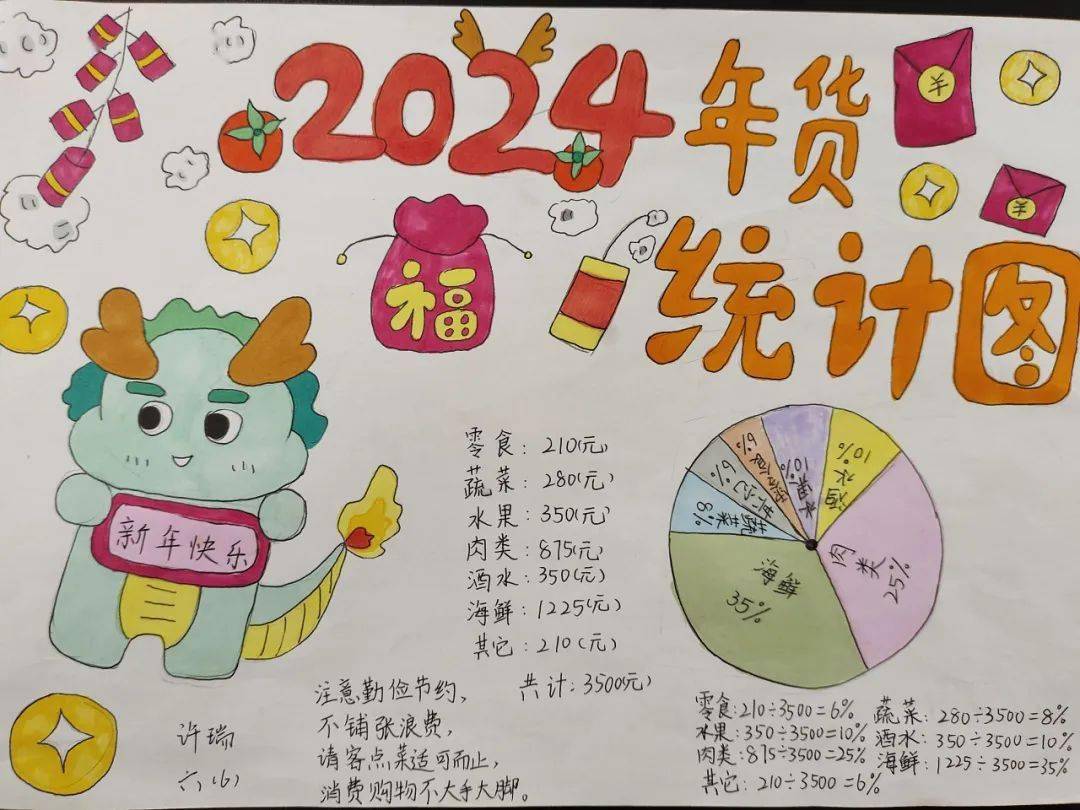 2024年货
统计图
¥
¥
福
新年快乐
零食：210(元)
蔬菜：280(元)
水果：350(元)
肉类：875(元)
酒水：350(元)
海鲜：1225(元)
其它：210(元)
共计：3500(元)
酒水
10%
水果
10%
零食
6%
其它
6%
蔬菜
8%
肉类
25%
海鲜
35%
许瑞
六(6)
注意勤俭节约，
不铺张浪费，
请客点菜适可而止，
消费购物不大手大脚。
零食：210÷3500=6%
水果：350÷3500=10%
肉类：875÷3500=25%
其它：210÷3500=6%
蔬菜：280÷3500=8%
酒水：350÷3500=10%
海鲜：1225÷3500=35%